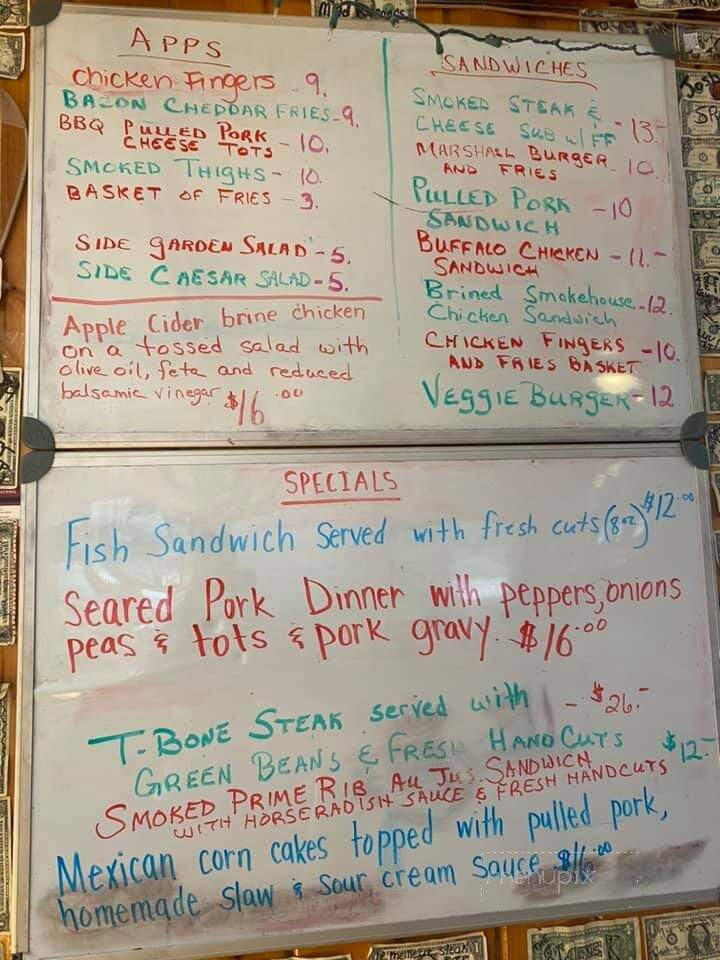 APPS
Chicken Fingers - 9.
BACON CHEDDAR FRIES - 9.
BBQ PULLED PORK
CHEESE TOTS - 10.
SMOKED THIGHS - 10.
BASKET OF FRIES - 3.
SIDE GARDEN SALAD - 5.
SIDE CAESAR SALAD - 5.
Apple Cider brine chicken
on a tossed salad with
olive oil, feta and reduced
balsamic vinegar $16.00
SANDWICHES
SMOKED STEAK &
CHEESE SUB W/ FF - 13.-
MARSHALL BURGER
AND FRIES - 10.
PULLED PORK
SANDWICH - 10
BUFFALO CHICKEN - 11.-
SANDWICH
Brined Smokehouse - 12.
Chicken Sandwich
CHICKEN FINGERS - 10.
AND FRIES BASKET
VEGGIE BURGER - 12
SPECIALS
Fish Sandwich Served with fresh cuts (8oz) $12.00
Seared Pork Dinner with peppers, onions
peas & tots & pork gravy. $16.00
T-BONE STEAK served with - $26.-
GREEN BEANS & FRESH HAND CUTS
SMOKED PRIME RIB AU JUS SANDWICH $12.-
WITH HORSERADISH SAUCE & FRESH HANDCUTS
Mexican corn cakes topped with pulled pork,
homemade slaw & sour cream sauce $16.00
menupix